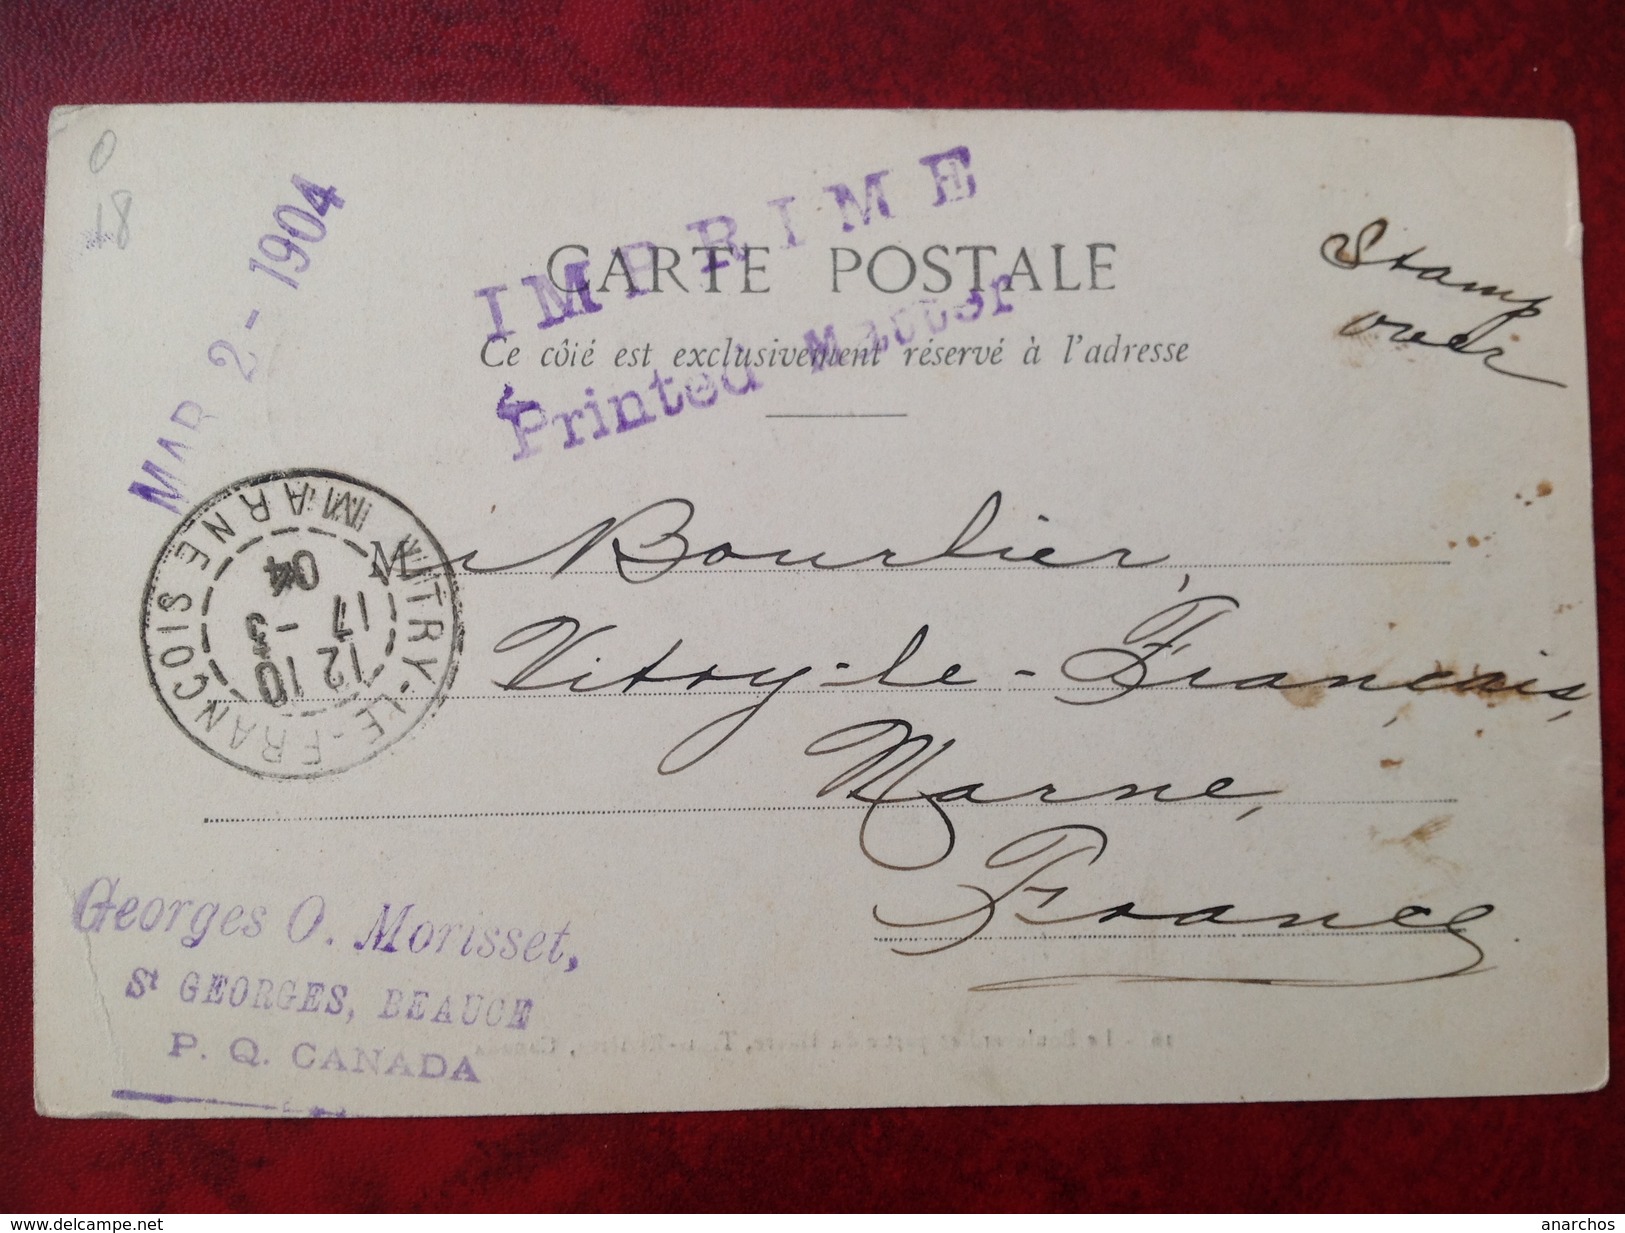 O
18
MAR 2 - 1904
IMPRIME
CARTE POSTALE
Printed Matter
Ce côié est exclusivement réservé à l'adresse
Stamp
over
VITRY-LE-FRANCOIS
MARNE
12 10
17 - 3
04
M r Bourlier,
Vitry-le-Français,
Marne,
France
Georges O. Morisset,
St GEORGES, BEAUCE
P. Q. CANADA
www.delcampe.net
anarchos